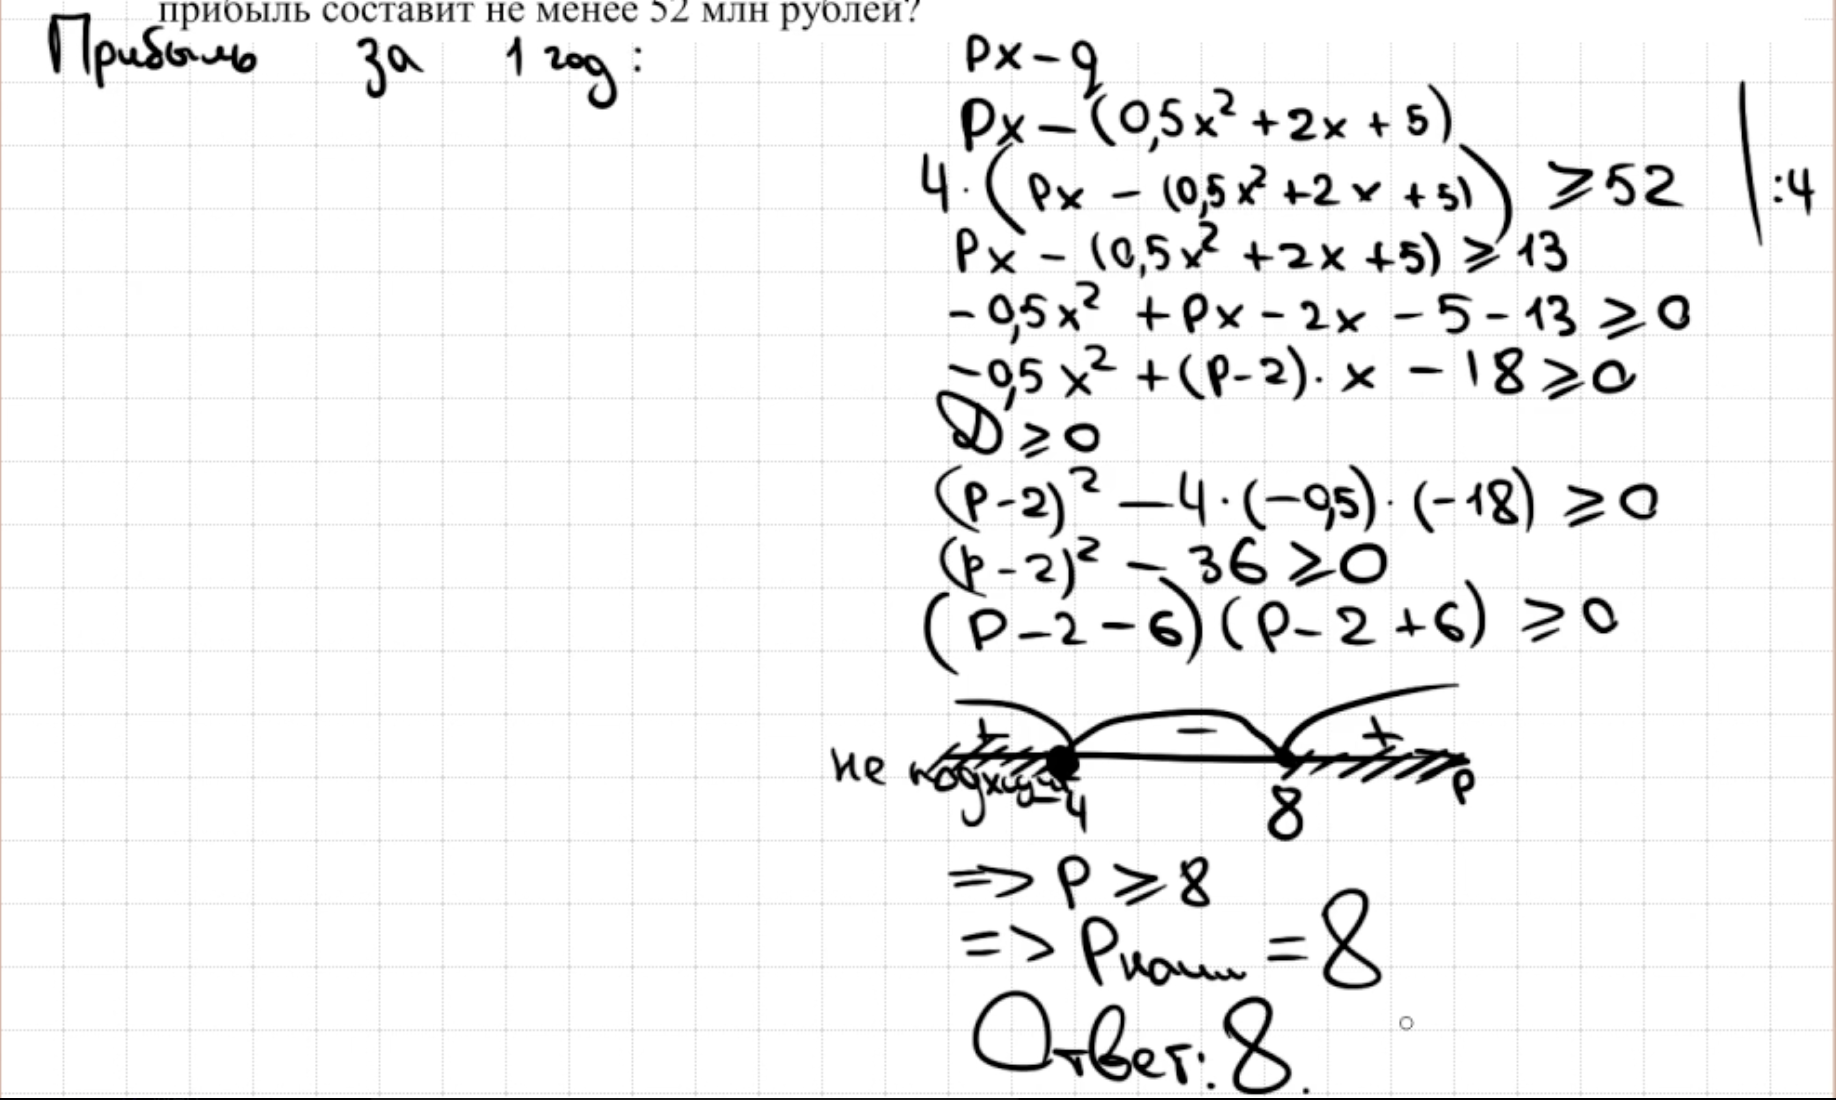 прибыль составит не менее 52 млн рублей?
Прибыль за 1 год: px - q
px - (0,5x² + 2x + 5)
4 · (px - (0,5x² + 2x + 5)) ⩾ 52 | :4
px - (0,5x² + 2x + 5) ⩾ 13
-0,5x² + px - 2x - 5 - 13 ⩾ 0
-0,5x² + (p-2) · x - 18 ⩾ 0
D ⩾ 0
(p-2)² - 4 · (-0,5) · (-18) ⩾ 0
(p-2)² - 36 ⩾ 0
(p-2-6)(p-2+6) ⩾ 0
+ - +
не подходит -4 8 p
=> p ⩾ 8
=> p наим = 8
Ответ: 8.